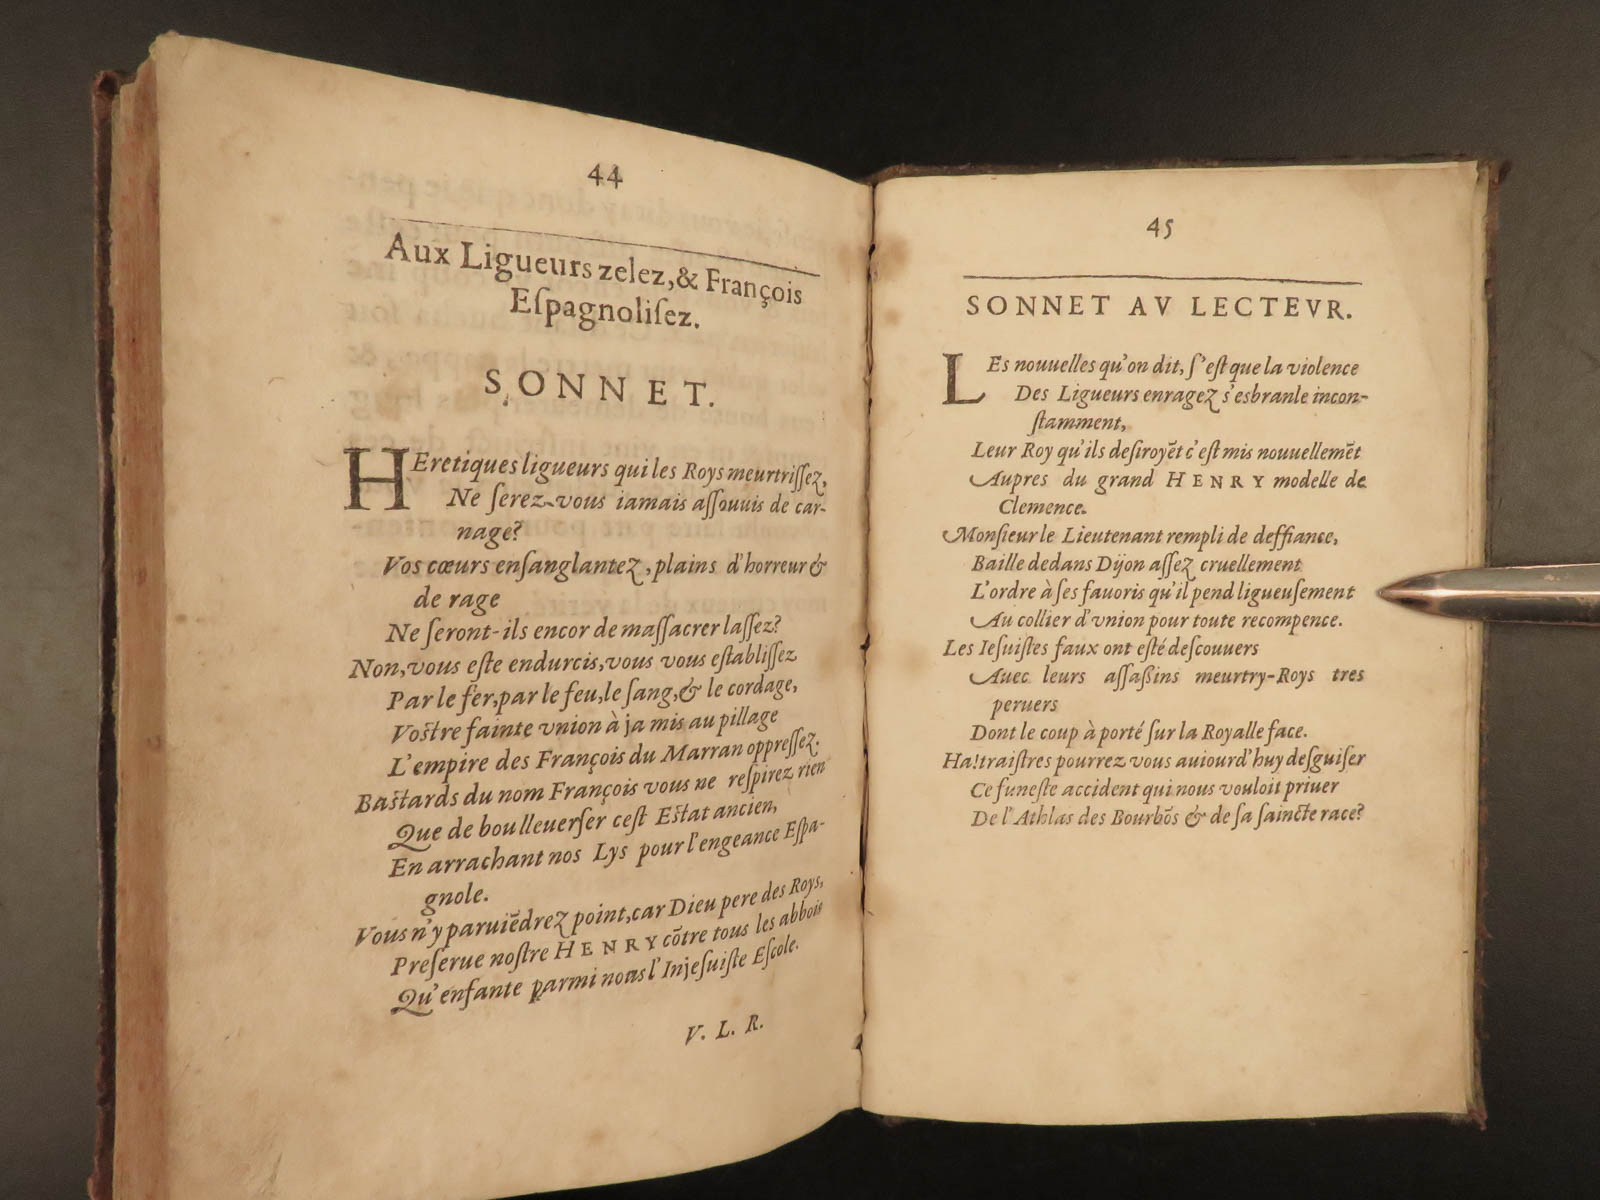 44
Aux Ligueurs zelez, & François
Eſpagnoliſez.
SONNET.
HEretiques ligueurs qui les Roys meurtriſſez,
Ne ſerez-vous iamais aſſouuis de car-
nage?
Vos cœurs enſanglantez, plains d'horreur &
de rage
Ne ſeront-ils encor de maſſacrer laſſez?
Non, vous eſte endurcis, vous vous eſtabliſſez
Par le fer, par le feu, le ſang, & le cordage,
Voſtre fainte vnion à ja mis au pillage
L'empire des François du Marran oppreſſez.
Baſtards du nom François vous ne reſpirez rien
Que de boulleuerſer ceſt Eſtat ancien,
En arrachant nos Lys pour l'engeance Eſpa-
gnole.
Vous n'y paruiẽdrez point, car Dieu pere des Roys,
Preſerue noſtre HENRY cõtre tous les abbois
Qu'enfante parmi nous l'Injeſuiſte Eſcole.
V. L. R.
45
SONNET AV LECTEVR.
LEs nouuelles qu'on dit, ſ'eſt que la violence
Des Ligueurs enragez s'esbranle incon-
ſtamment,
Leur Roy qu'ils deſiroyẽt c'eſt mis nouuellemẽt
Aupres du grand HENRY modelle de
Clemence.
Monſieur le Lieutenant rempli de deffiance,
Baille dedans Dijon aſſez cruellement
L'ordre à ſes fauoris qu'il pend ligueuſement
Au collier d'vnion pour toute recompence.
Les Ieſuiſtes faux ont eſté deſcouuers
Auec leurs aſſaßins meurtry-Roys tres
peruers
Dont le coup à porté ſur la Royalle face.
Ha! traiſtres pourrez vous auiourd'huy deſguiſer
Ce funeſte accident qui nous vouloit priuer
De l'Athlas des Bourbõs & de ſa ſaincte race?